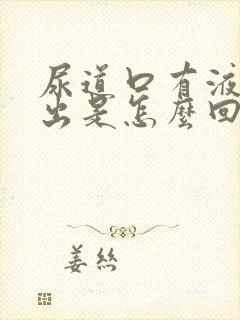 尿道口有液
出是怎麼回
姜丝